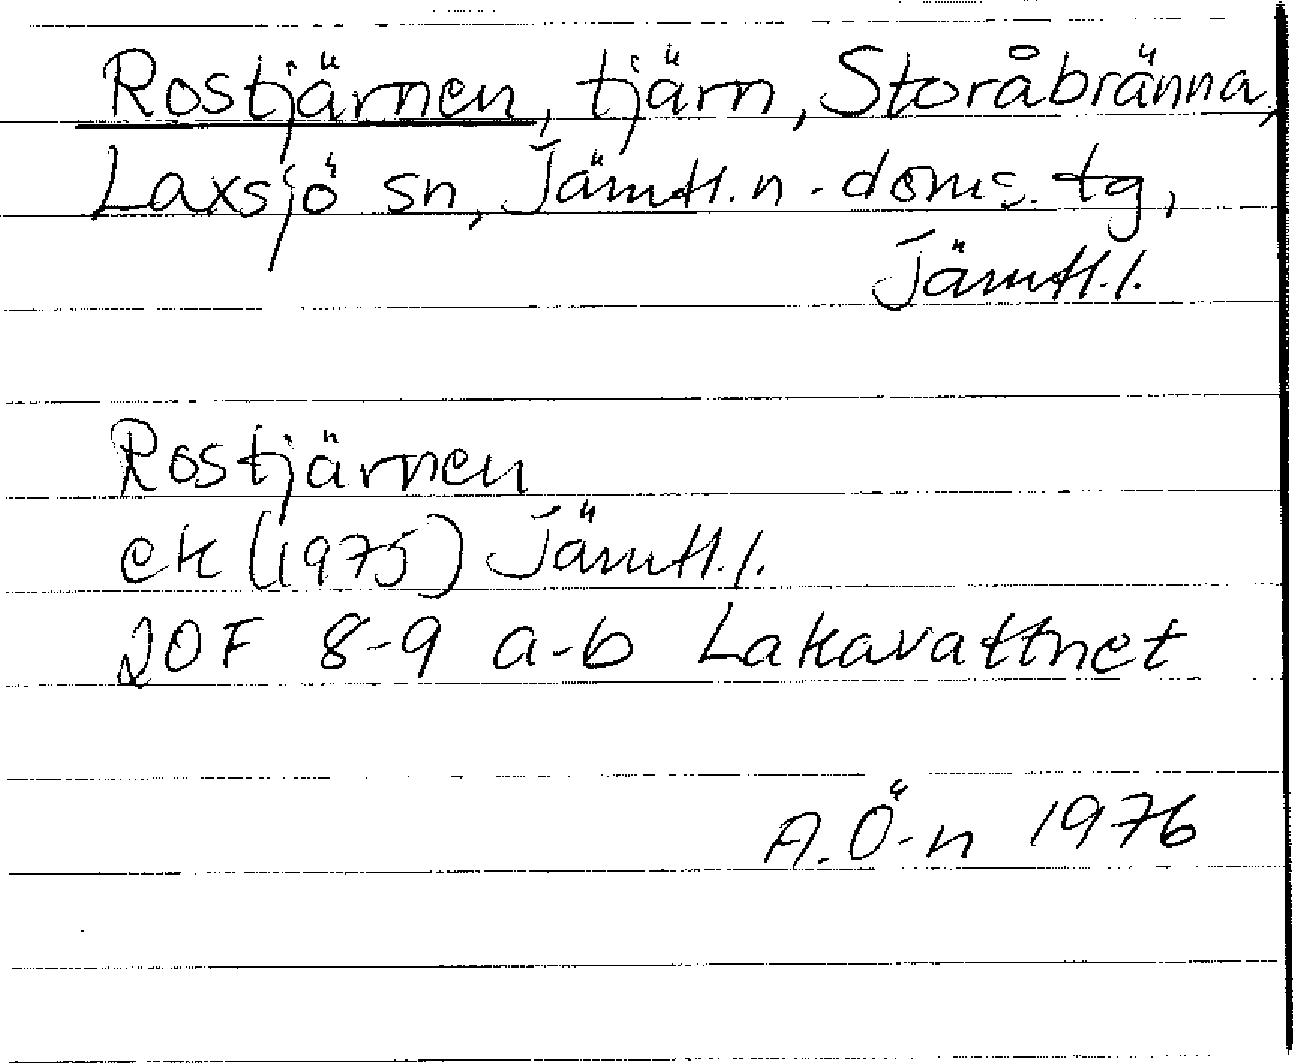 Rostjärnen, tjärn, Storåbränna,
Laxsjö sn, Jämtl.n. doms. tg,
Jämtl.l.
Rostjärnen
ek (1975) Jämtl.l.
20F 8-9 a-b Lakavattnet
A. Ö-n 1976